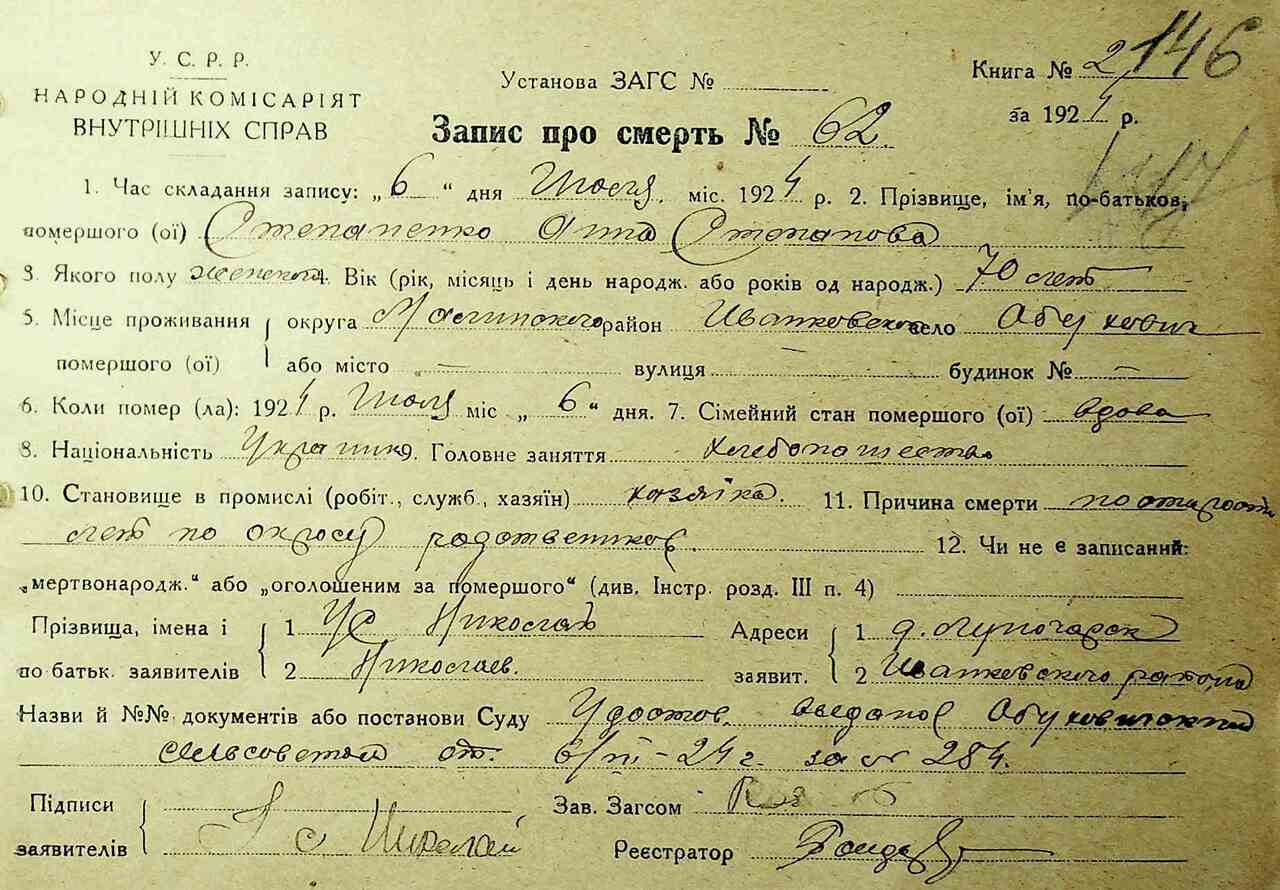 У. С. Р. Р.
НАРОДНІЙ КОМІСАРІЯТ
ВНУТРІШНІХ СПРАВ
Установа ЗАГС №
Книга № 2 146
за 1924 р.
Запис про смерть № 62.
1. Час складання запису: „6“ дня Июля, міс. 1924 р. 2. Прізвище, ім'я, по-батьков,
помершого (ої) Степаненко Анна Степанова
3. Якого полу женского 4. Вік (рік, місяць і день народж. або років од народж.) 70 лет
5. Місце проживання округа Малинского район Иванковского село Обуховичи
помершого (ої) або місто — вулиця будинок № —
6. Коли помер (ла): 1924 р. Июля міс „6“ дня. 7. Сімейний стан помершого (ої) вдова
8. Національність Украинк 9. Головне заняття хлебопашество
10. Становище в промислі (робіт., служб., хазяїн) хазяйка. 11. Причина смерти по старости
лет по опросу родствеников. 12. Чи не є записаний:
„мертвонародж.“ або „оголошеним за помершого“ (див. Інстр. розд. III п. 4)
Прізвища, імена і 1 Ус Николай Адреси 1 д.
по батьк. заявителів 2 Николаев. заявит. 2 Иванковского района
Назви й №№ документів або постанови Суду Удостов. выданое Обуховичским
сельсоветом от. 6/VII-24 г. за № 284.
Підписи Зав. Загсом
заявителів Ус Николай Реєстратор